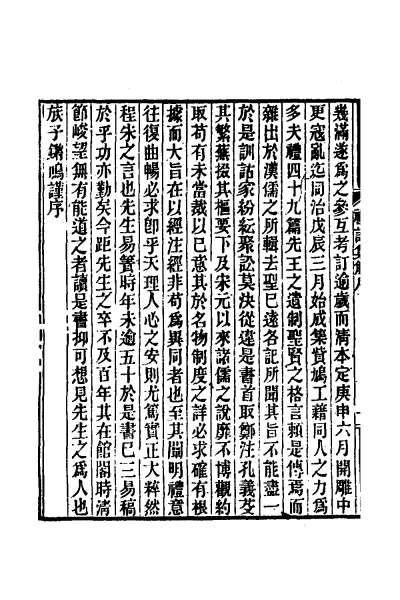 幾滿遂爲之參互考訂逾歲而清本定庚申六月開雕中
更寇亂迄同治戊辰三月始咸集貲鳩工藉同人之力爲
多夫禮四十九篇先王之遺制聖賢之格言賴是傳焉而
雜出於漢儒之所輯去聖已遠各記所聞其旨不能盡一
於是訓詁家紛紜聚訟莫決從違是書首取鄭注孔義芟
其繁蕪掇其樞要下及宋元以來諸儒之說靡不博觀約
取苟有未當裁以已意其於名物制度之詳必求確有根
據而大旨在以經注經非苟爲異同者也至其闡明禮意
往復曲暢必求卽乎天理人心之安則尤篤實正大粹然
程朱之言也先生易簀時年未逾五十於是書已三易稿
於乎功亦勤矣今距先生之卒不及百年其在館閣時清
節峻望無有能道之者讀是書抑可想見先生之爲人也
族子鏘鳴謹序